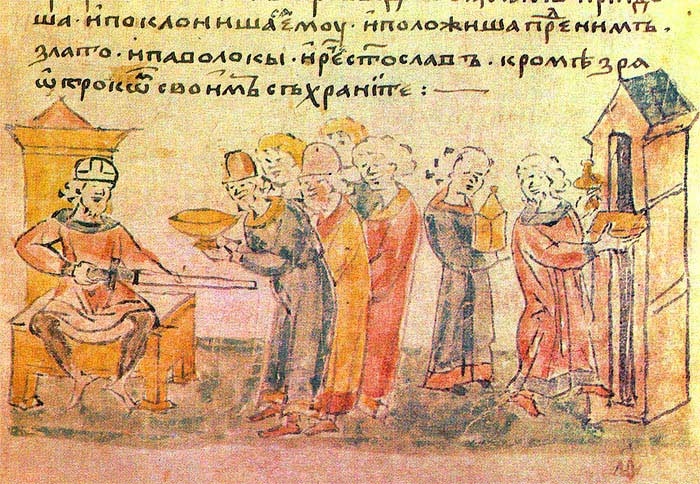 ша · и поклонишаⷭ҇ѧ емоу · и положиша преⷣ нимъ ·
злато · и паволокы · и реⷱ҇ ст҃ославъ · кромѣ зря
ѿтрокѡⷨ своимъ съхраніте : —